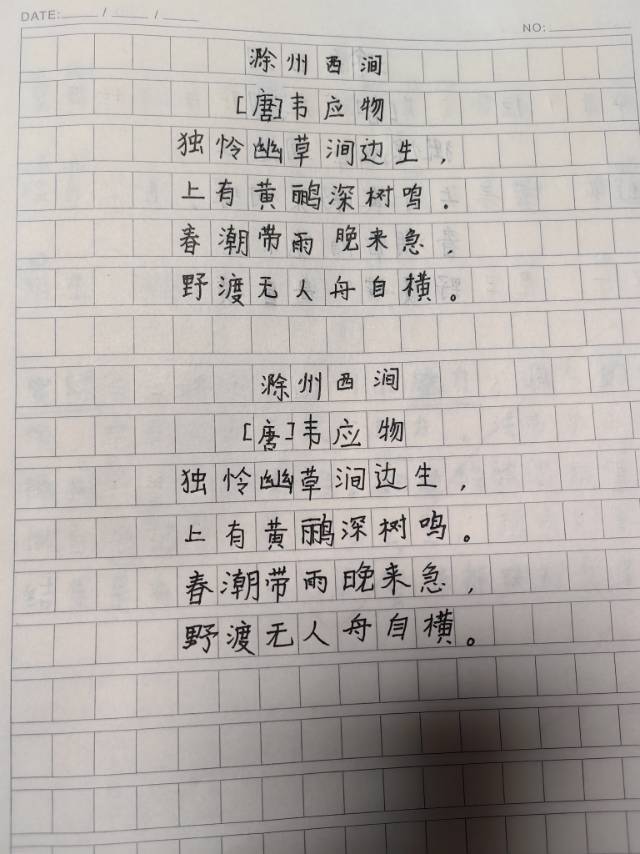 DATE: / /
NO:
滁州西涧
[唐]韦应物
独怜幽草涧边生，
上有黄鹂深树鸣。
春潮带雨晚来急，
野渡无人舟自横。
滁州西涧
[唐]韦应物
独怜幽草涧边生，
上有黄鹂深树鸣。
春潮带雨晚来急，
野渡无人舟自横。